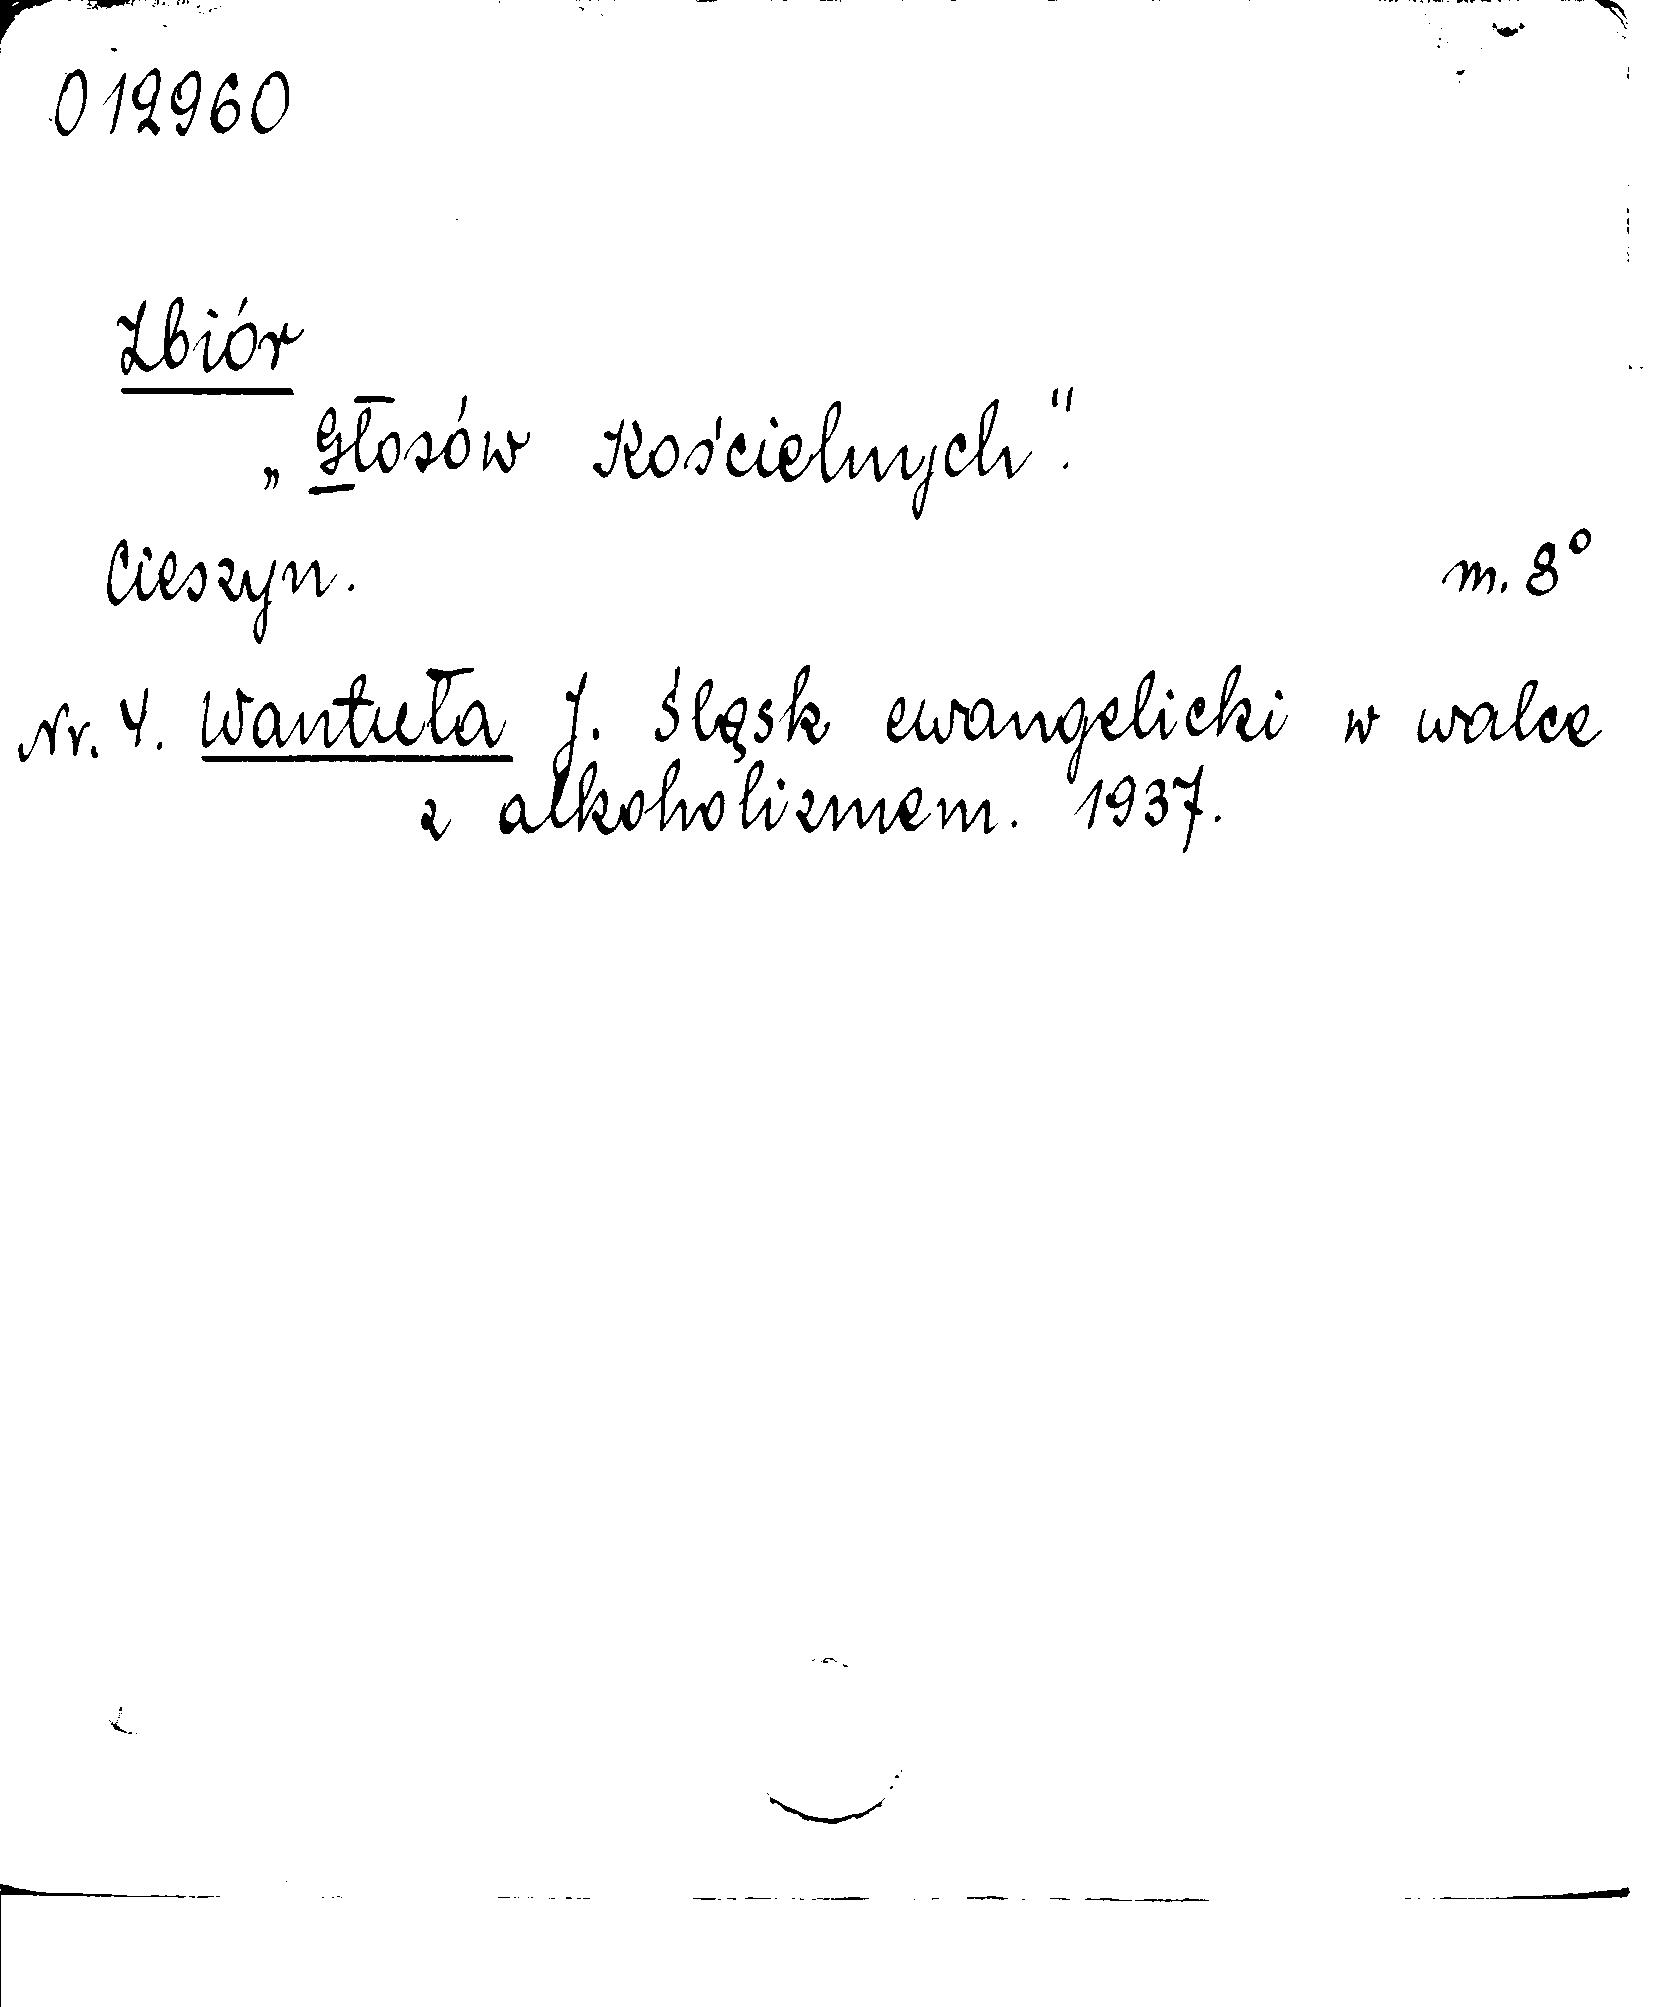 012960
Zbiór
„Głosów Kościelnych".
Cieszyn. m. 8°
Nr. 4. Wantuła J. Śląsk ewangelicki w walce
z alkoholizmem. 1937.